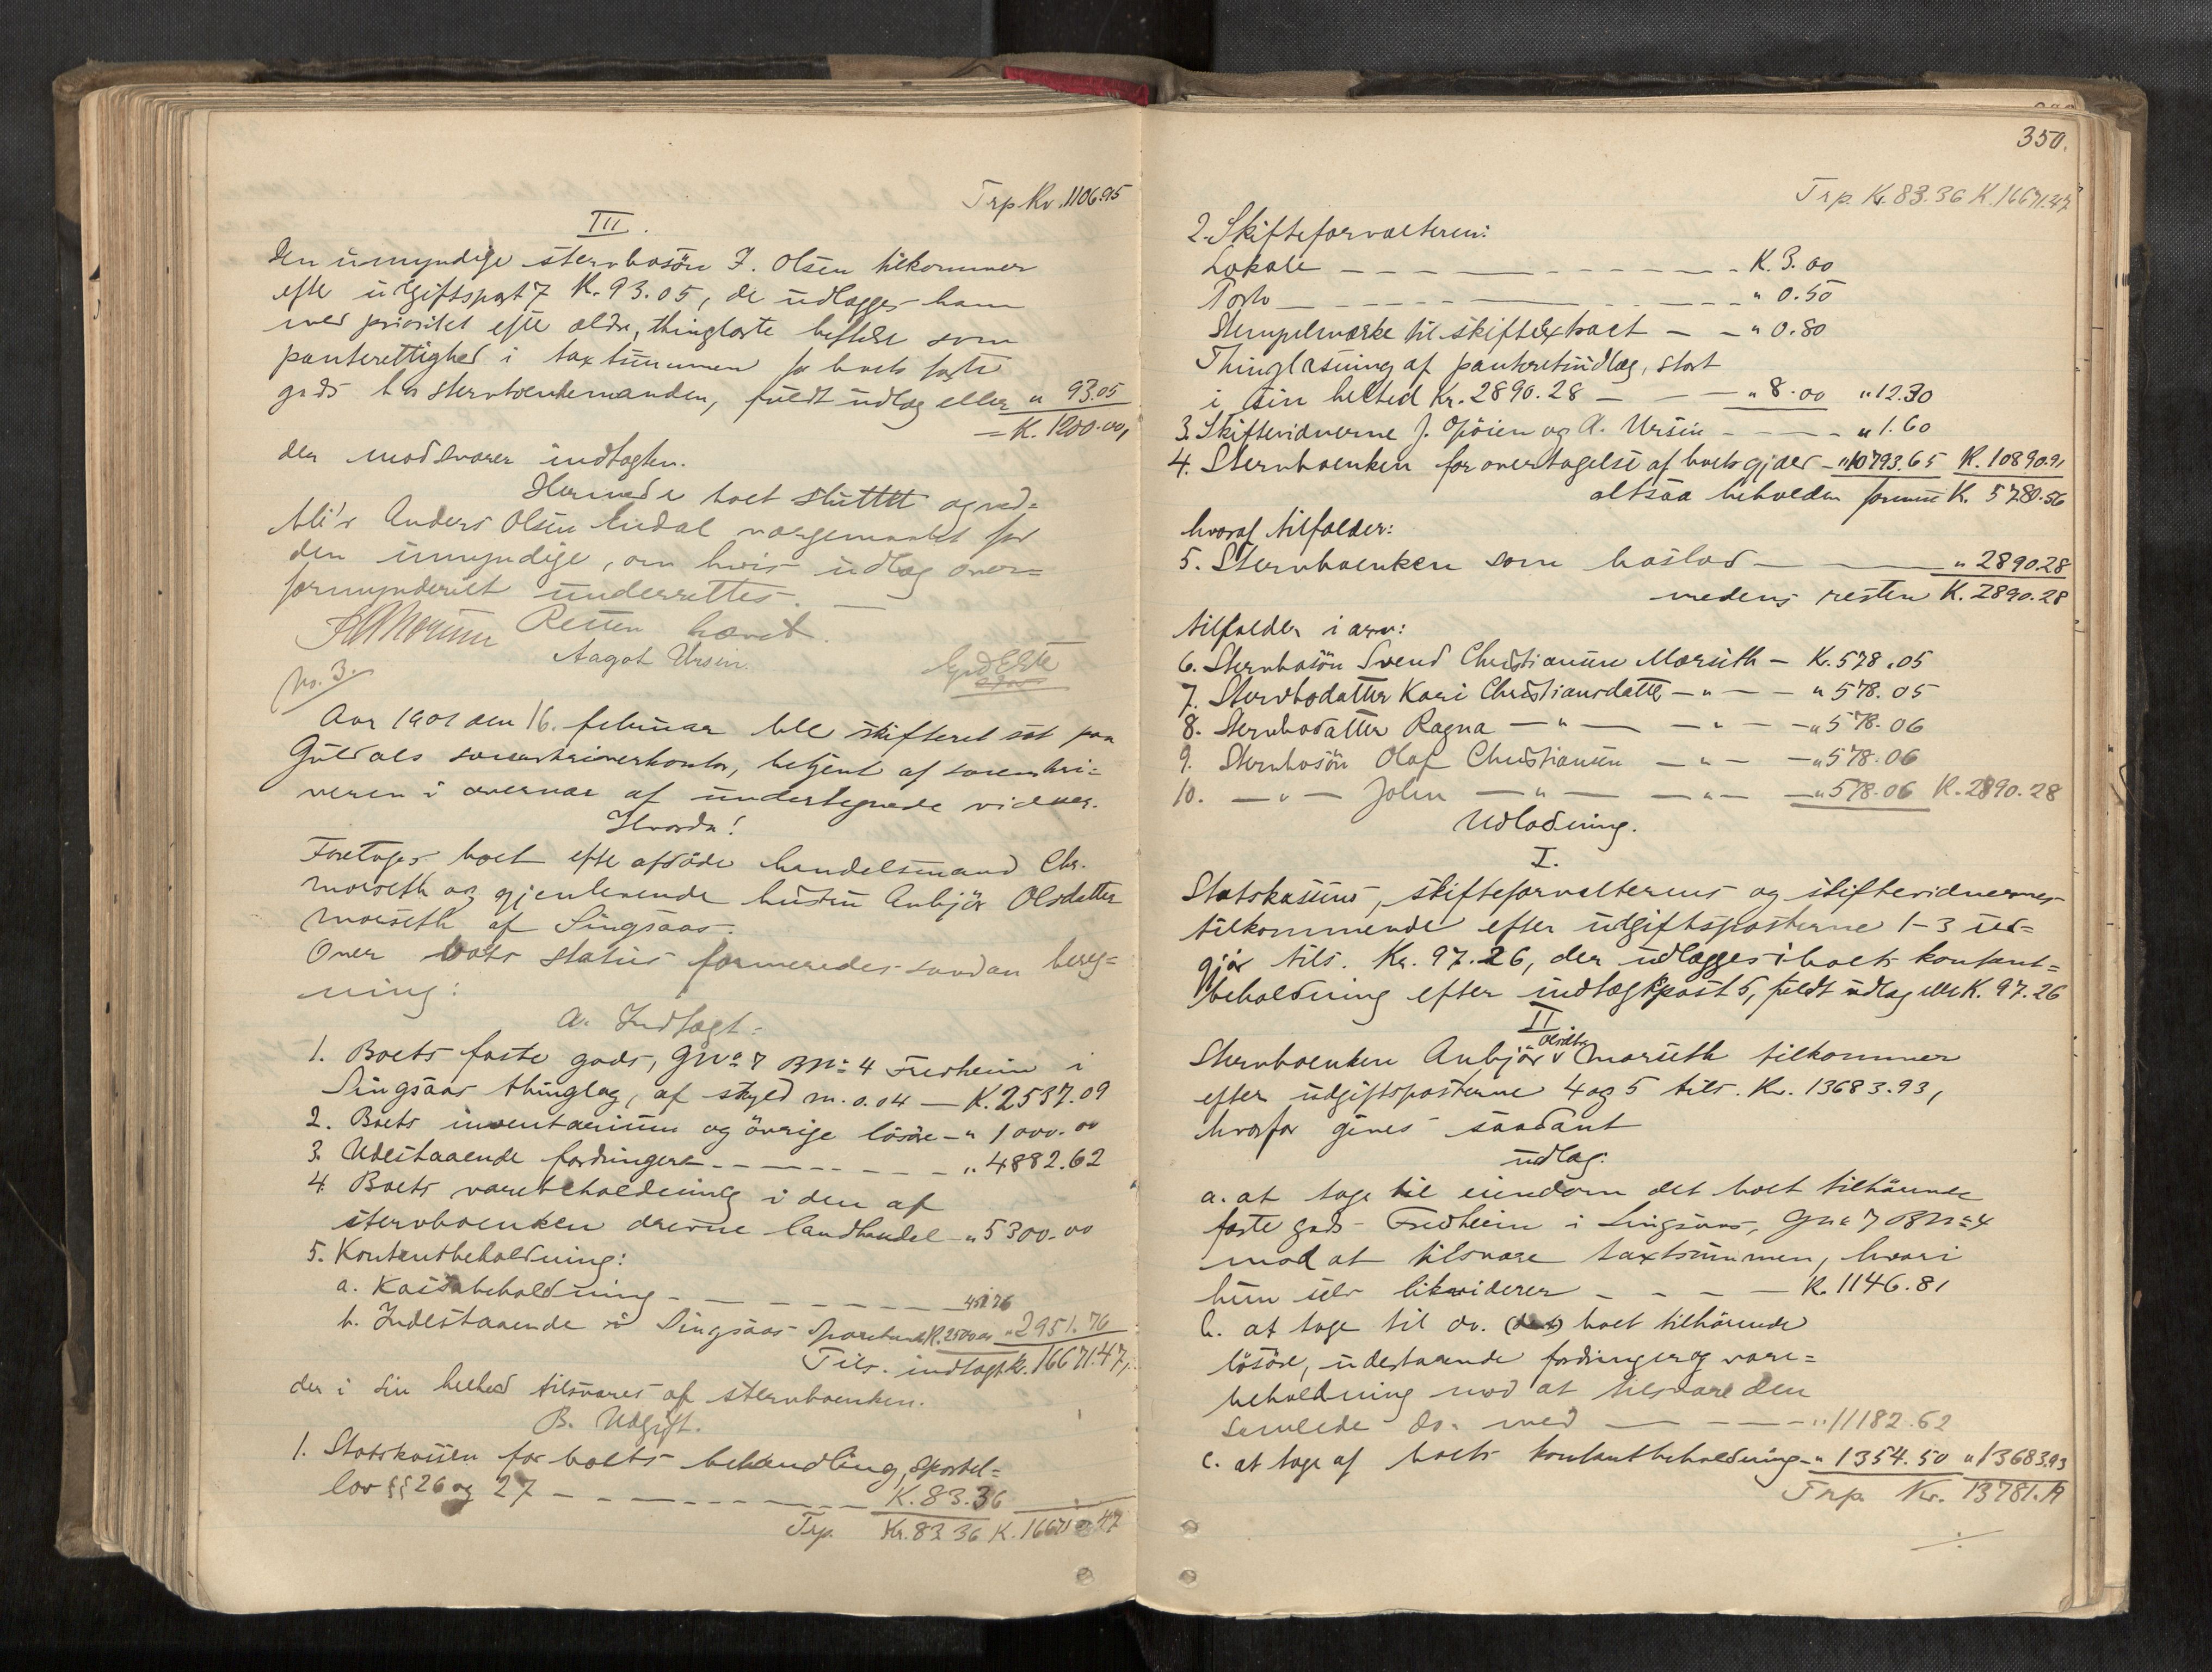 Trp Kr. 1106.95
III.
Den umyndige sterbosøn J. Olsen tilkommer
efter udgiftspost 7 K. 93.05, de udlægges ham
med prioritet efter ældre, thinglæste heftelser som
panterettighed i taxtsummen for boets faste
gods hos sterboenkemanden, fuldt udlæg eller " 93.05
= K. 1200.00,
der modsvarer indtægten.
Hermed er boet sluttet og ved-
bli'r Anders Olsen Endal værgemaalet for
den umyndige, om hvis udlæg over-
formynderiet underrettes. —
Retten hævet.
Aagot Ursin.
No. 3.
Aar 1901 den 16. februar ble skifteret sat paa
Guldals sorenskriverkontor, betjent af sorenskri-
veren i overvær af undertegnede vidner.
Hvorda!
Foretoges boet efter afdøde handelsmand Chr.
Morseth og gjenlevende hustru Anbjør Olsdatter
Morseth af Singsaas.
Over boets status formeredes saadan bereg-
ning:
A. Indtægt:
1. Boets faste gods, Gno 7 Bno 4 Fredheim i
Singsaas thinglag, af skyld m. 0.04 — K. 2537.09
2. Boets inventarium og øvrige løsøre — " 1000.00
3. Udestaaende fordringer — — — " 4882.62
4. Boets varebeholdning i den af
sterboenken drevne landhandel — " 5300.00
5. Kontantbeholdning:
a. Kassabeholdning — — — 451 76
b. Indestaaende i Singsaas Sparebank K. 2500.00 " 2951.76
Tils. indtægt K. 16671.47,
der i sin helhed tilsvares af sterboenken.
B. Udgift.
1. Statskassen for boets behandling, sportel-
lov §§ 26 og 27 — — — K. 83.36
Trp. Kr. 83 36 K. 16671.47
350.
Trp. Kr. 83.36 K. 16671.47
2. Skifteforvalteren:
Lokale — — — K. 3.00
Porto — — — " 0.50
Stempelmærke til skifteextract — — " 0.80
Thinglæsning af panteretsudlæg, stort
i sin helhed Kr. 2890.28 — — — " 8.00 " 12.30
3. Skiftevidnerne J. Opøien og A. Ursin — — — " 1.60
4. Sterboenken for overtagelse af boets gjæld — " 10793.65 K. 10890.91
altsaa beholden formue K. 5780.56
hvoraf tilfalder:
5. Sterboenken som boslod — — — " 2890.28
medens resten K. 2890.28
tilfalder i arv:
6. Sterbosøn Svend Christiansen Morseth — K. 578.05
7. Sterbodatter Kari Christiansdatter — " — — " 578.05
8. Sterbodatter Ragna — " — — " — — " 578.06
9. Sterbosøn Olaf Christiansen — " — — " 578.06
10. — " — John — " — — " — — " 578.06 K. 2890.28
Udlodning.
I.
Statskassens, skifteforvalterens og skiftevidnernes
tilkommende efter udgiftsposterne 1-3 ud-
gjør tils. Kr. 97.26, der udlægges i boets kontant-
beholdning efter indtægtspost 5, fuldt udlæg eller K. 97.26
II
Sterboenken Anbjør Olsdtr. Morseth tilkommer
efter udgiftsposterne 4 og 5 tils. Kr. 13683.93,
hvorfor gives saadant
udlæg:
a. at tage til eiendom det boet tilhørende
faste gods Fredheim i Singsaas, Gno 7 Bno 4
mod at tilsvare taxtsummen, hvori
hun selv likviderer — — — K. 1146.81
b. at tage til do. (det) boet tilhørende
løsøre, udestaaende fordringer og vare-
beholdning mod at tilsvare den
samlede do. med — — — " 11182.62
c. at tage af boets kontantbeholdning — " 1354.50 " 13683.93
Trp. Kr. 13781.19